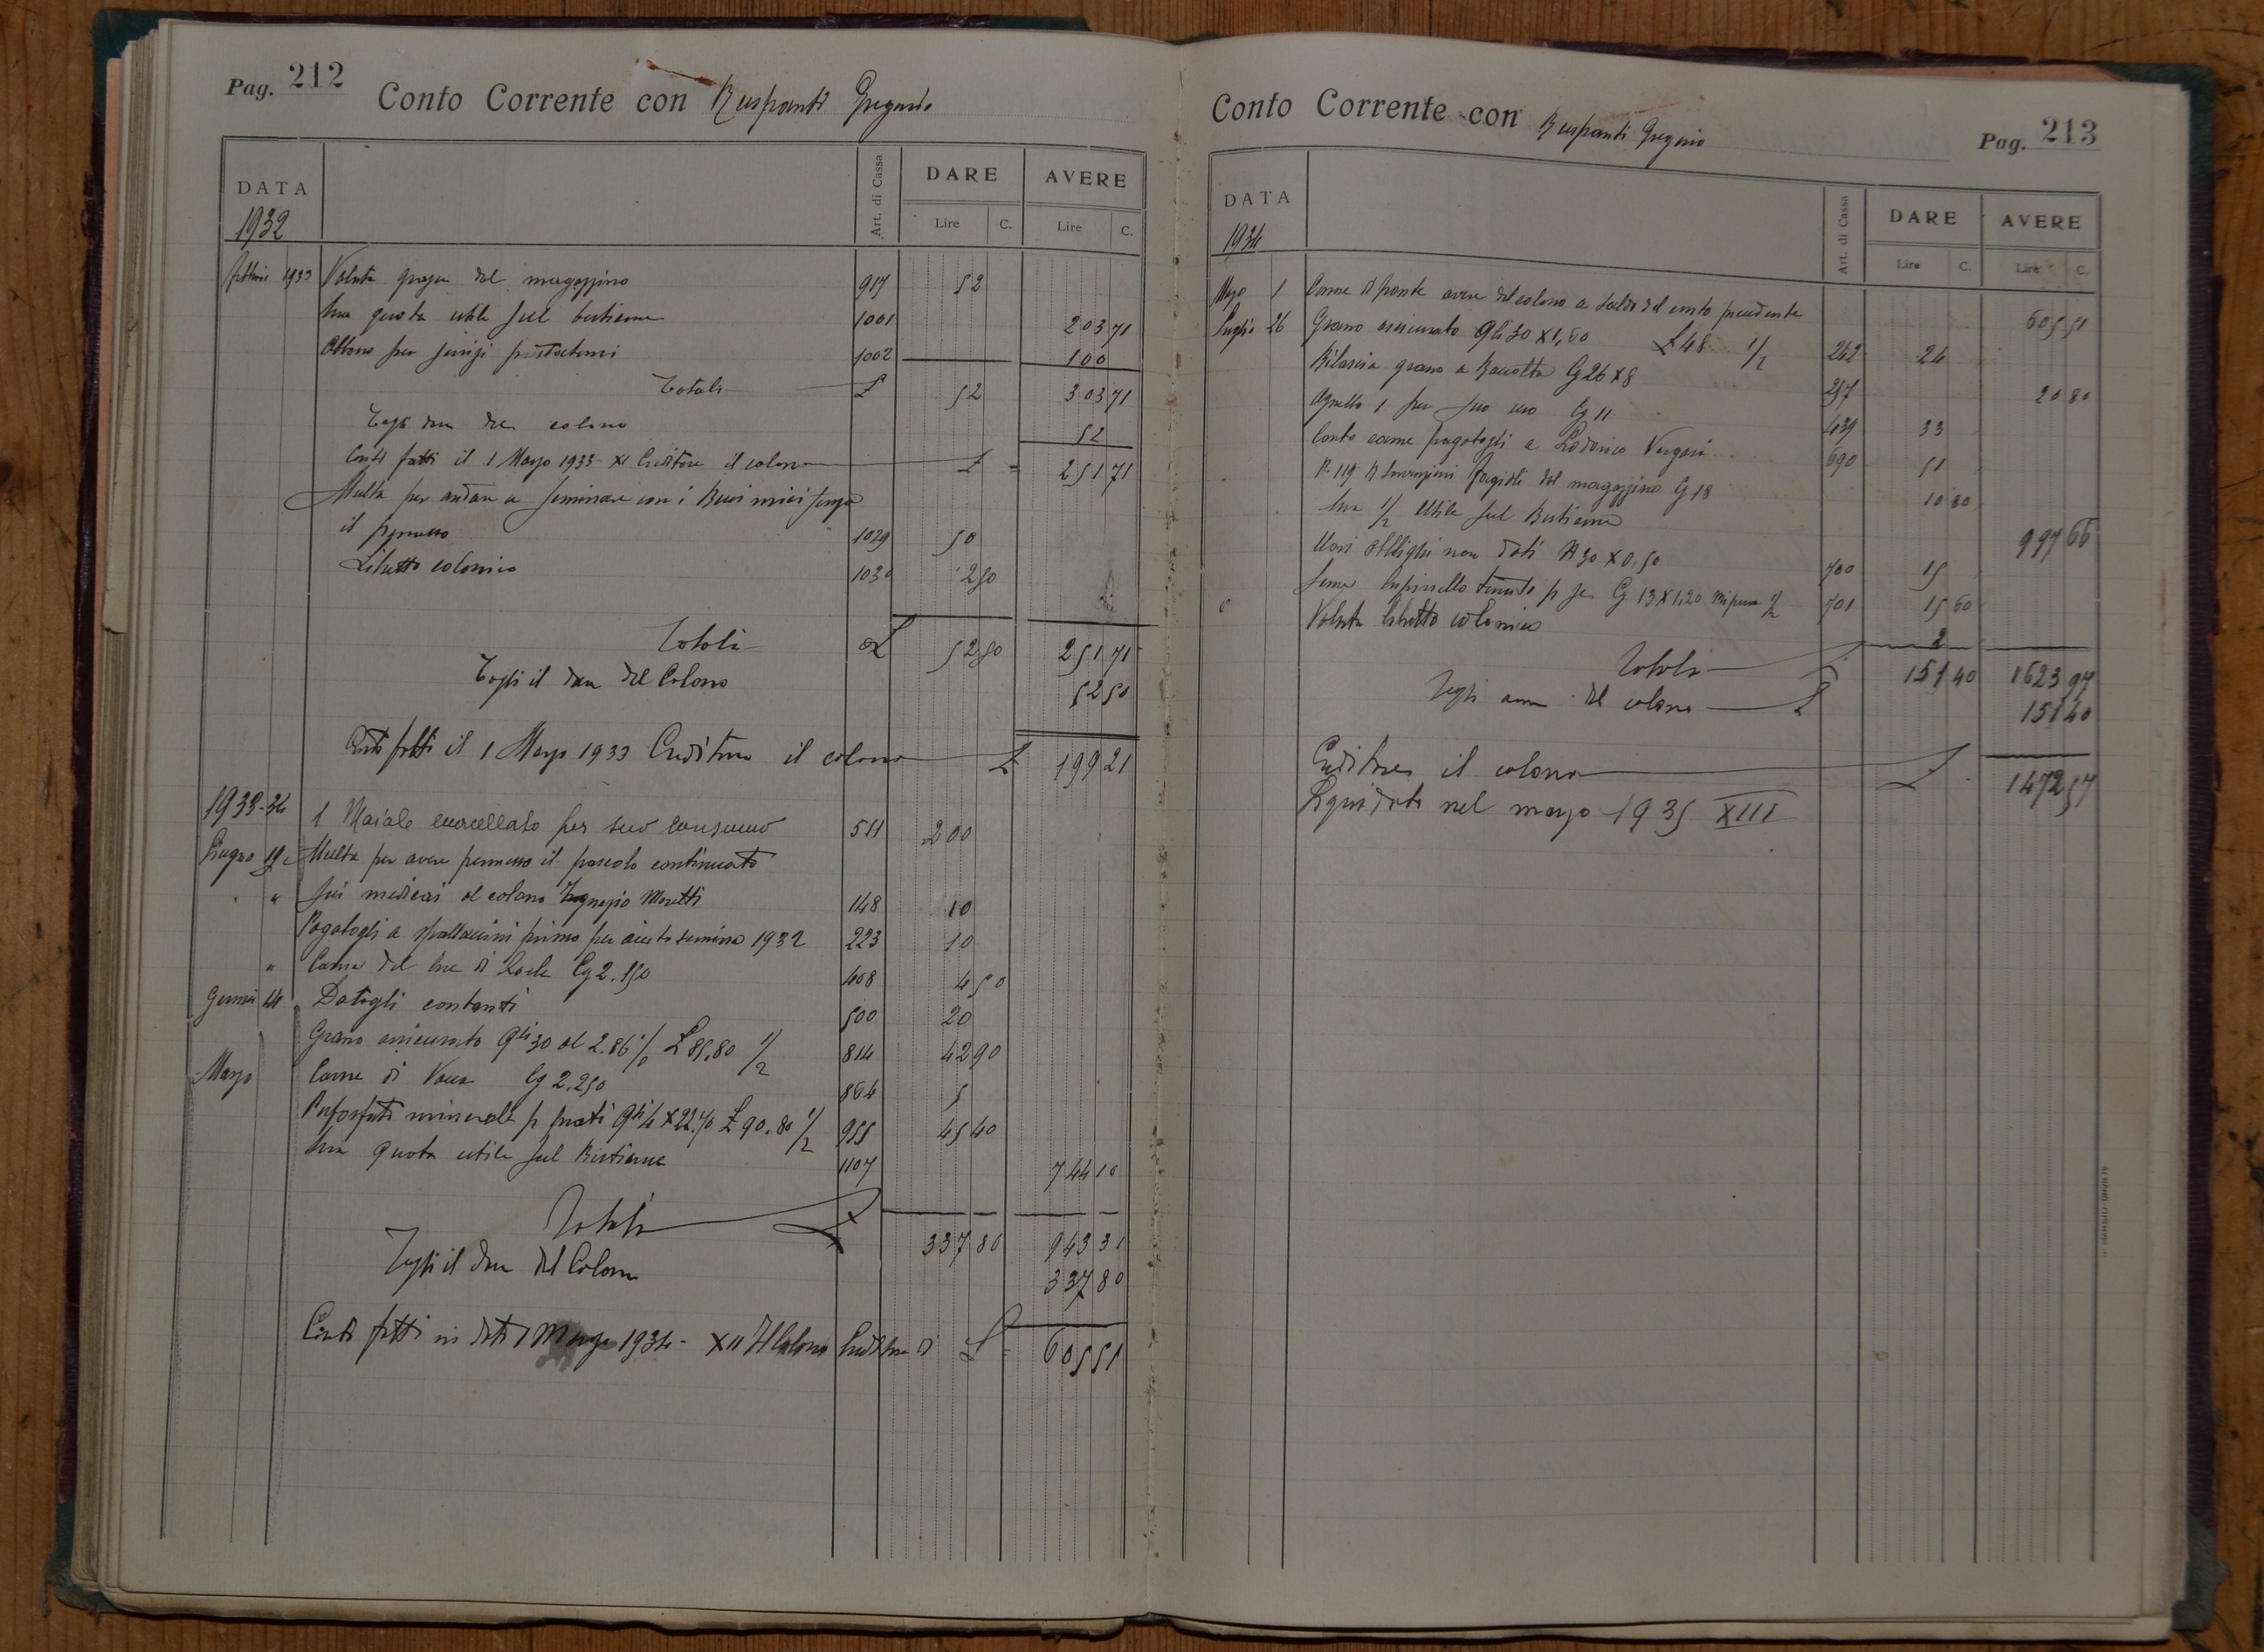 Pag. 212
Conto Corrente con Ruspanti Gregorio
DATA
1932
Art. di Cassa
DARE
AVERE
Lire C. Lire C.
1933 Valuta del magazzino 917 52
Sua quota utile sul bestiame 1001 203 71
Abbono per servizi 1002 100
Totale £ 52 303 71
Togli dare del colono 52
Conti fatti il 1 Marzo 1933 XI Creditore il colono £ = 251 71
Multa per andare a seminare con i Buoi miei senza
il permesso 1029 50
Libretto colonico 1030 2 50
Totali £ 52 50 251 71
Togli il dare del Colono 52 50
Conti fatti il 1 Marzo 1933 Creditore il colono £ 199 21
1933-34
1 Maiale macellato per suo consumo 511 200
Giugno Multa per avere permesso il pascolo continuato
" sui medicai al colono Moretti 148 10
Pagatogli a primo per aiuto semina 1932 223 10
" Carne del bue di Cg 2.150 408 4 50
14 Datogli contanti 500 20
Grano assicurato Qli 30 al 2.86 % £ 85,80 1/2 814 42 90
Marzo Carne di Vacca Cg 2.250 864 5
Perfosfati minerale p prati Qli 4 x 22.70 £ 90.80 1/2 955 45 40
Sua quota utile sul Bestiame 1107 744 10
Totali £ 337 80 943 31
Togli il dare del Colono 337 80
Conti fatti in data 1 Marzo 1934 - XII Il Colono Creditore di £ = 605 51
Conto Corrente con Ruspanti Gregorio
Pag. 213
DATA
1934
Art. di Cassa
DARE
AVERE
Lire C. Lire C.
Marzo 1 Come di fronte avere del colono a saldo del conto precedente 605 51
Luglio 26 Grano assicurato Qli 30 x 1,60 £ 48 1/2 262 24
Rilascia grano a Raccolta Cg 26 x 8 297 20 80
Agnello 1 per suo uso Cg 11 439 33
Conto carne pagatogli a Lodovico Vergari 690 51
fagioli del magazzino Cg 18 10 80
Sua 1/2 Utile sul Bestiame 997 66
Uovi obblighi non dati N 30 x 0,50 700 15
Seme lupinello tenuto p se Cg 13 x 1.20 1/2 701 15 60
Valuta libretto colonico 2
Totali £ 151 40 1623 97
Togli dare del colono £ 151 40
Creditore il colono £ 1472 57
Liquidato nel marzo 1935 XIII